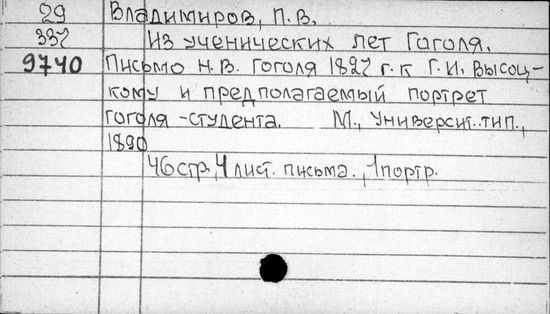 29 Владимиров, П. В.
337 Из ученических лет Гоголя.
9740 Письмо Н. В. Гоголя 1827 г. к Г. И. Высоц-
кому и предполагаемый портрет
Гоголя-студента. М., Университ. тип.,
1890
46 стр., 4 лист. письма., 1 портр.